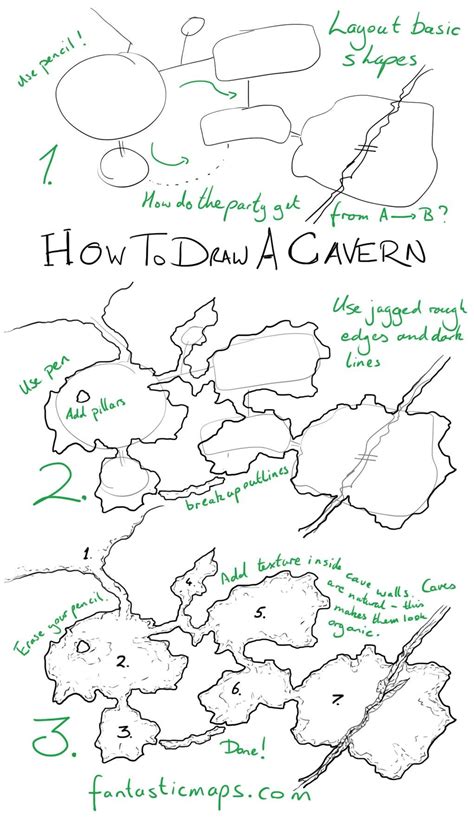 Use pencil!
Layout basic
shapes
1.
How do the party get
from A → B?
HOW TO DRAW A CAVERN
Use pen
Use jagged rough
edges and dark
lines
Add pillars
2.
break up outlines
1.
Erase your pencil.
Add texture inside
cave walls. Caves
are natural - this
makes them look
organic.
4.
5.
2.
6.
7.
3.
3.
Done!
fantasticmaps.com